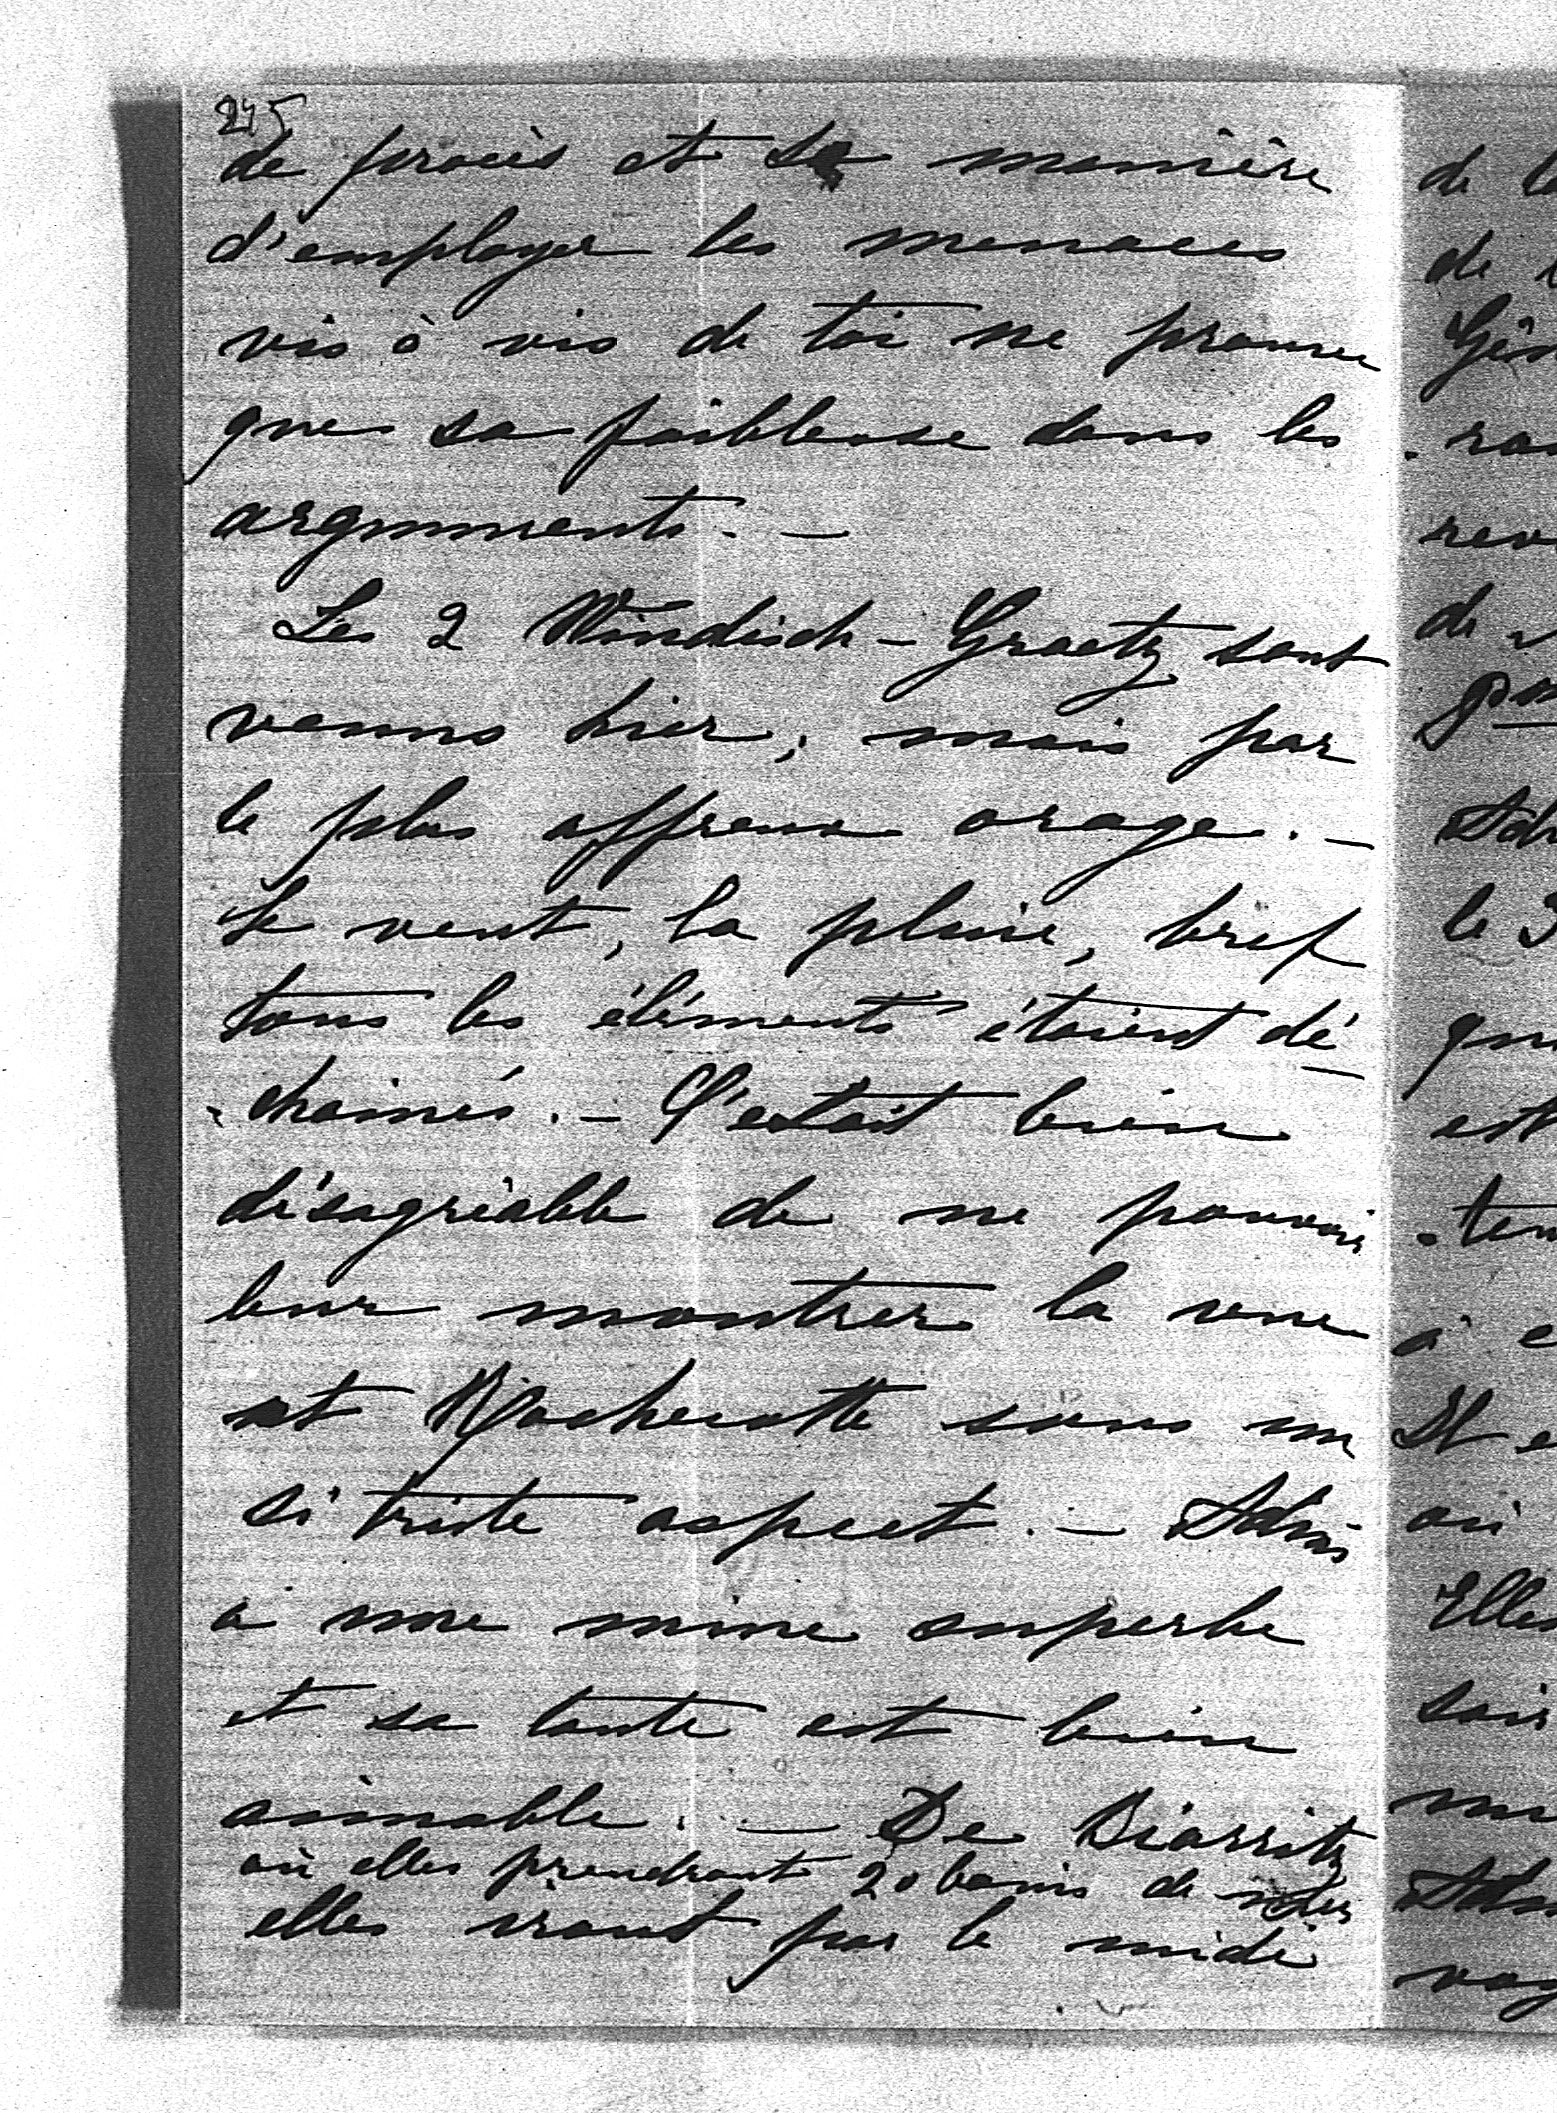 245
de procès et sa manière
d'employer les menaces
vis à vis de toi ne prouve
que sa faiblesse dans les
arguments. —
Les 2 Windisch-Graetz sont
venus hier, mais par
le plus affreux orage. —
Le vent, la pluie, bref
tous les éléments étaient dé
-chainés. — C'etait bien
désagréable de ne pouvoir
leur montrer la vue
et Rochecotte sous un
si triste aspect. —
a une mine superbe
et sa tante est bien
aimable. — De Biarritz
où elles prendront 20 bains de mer
elles iront par le midi
de
de
le 3
à
Et
où
Elles
soir